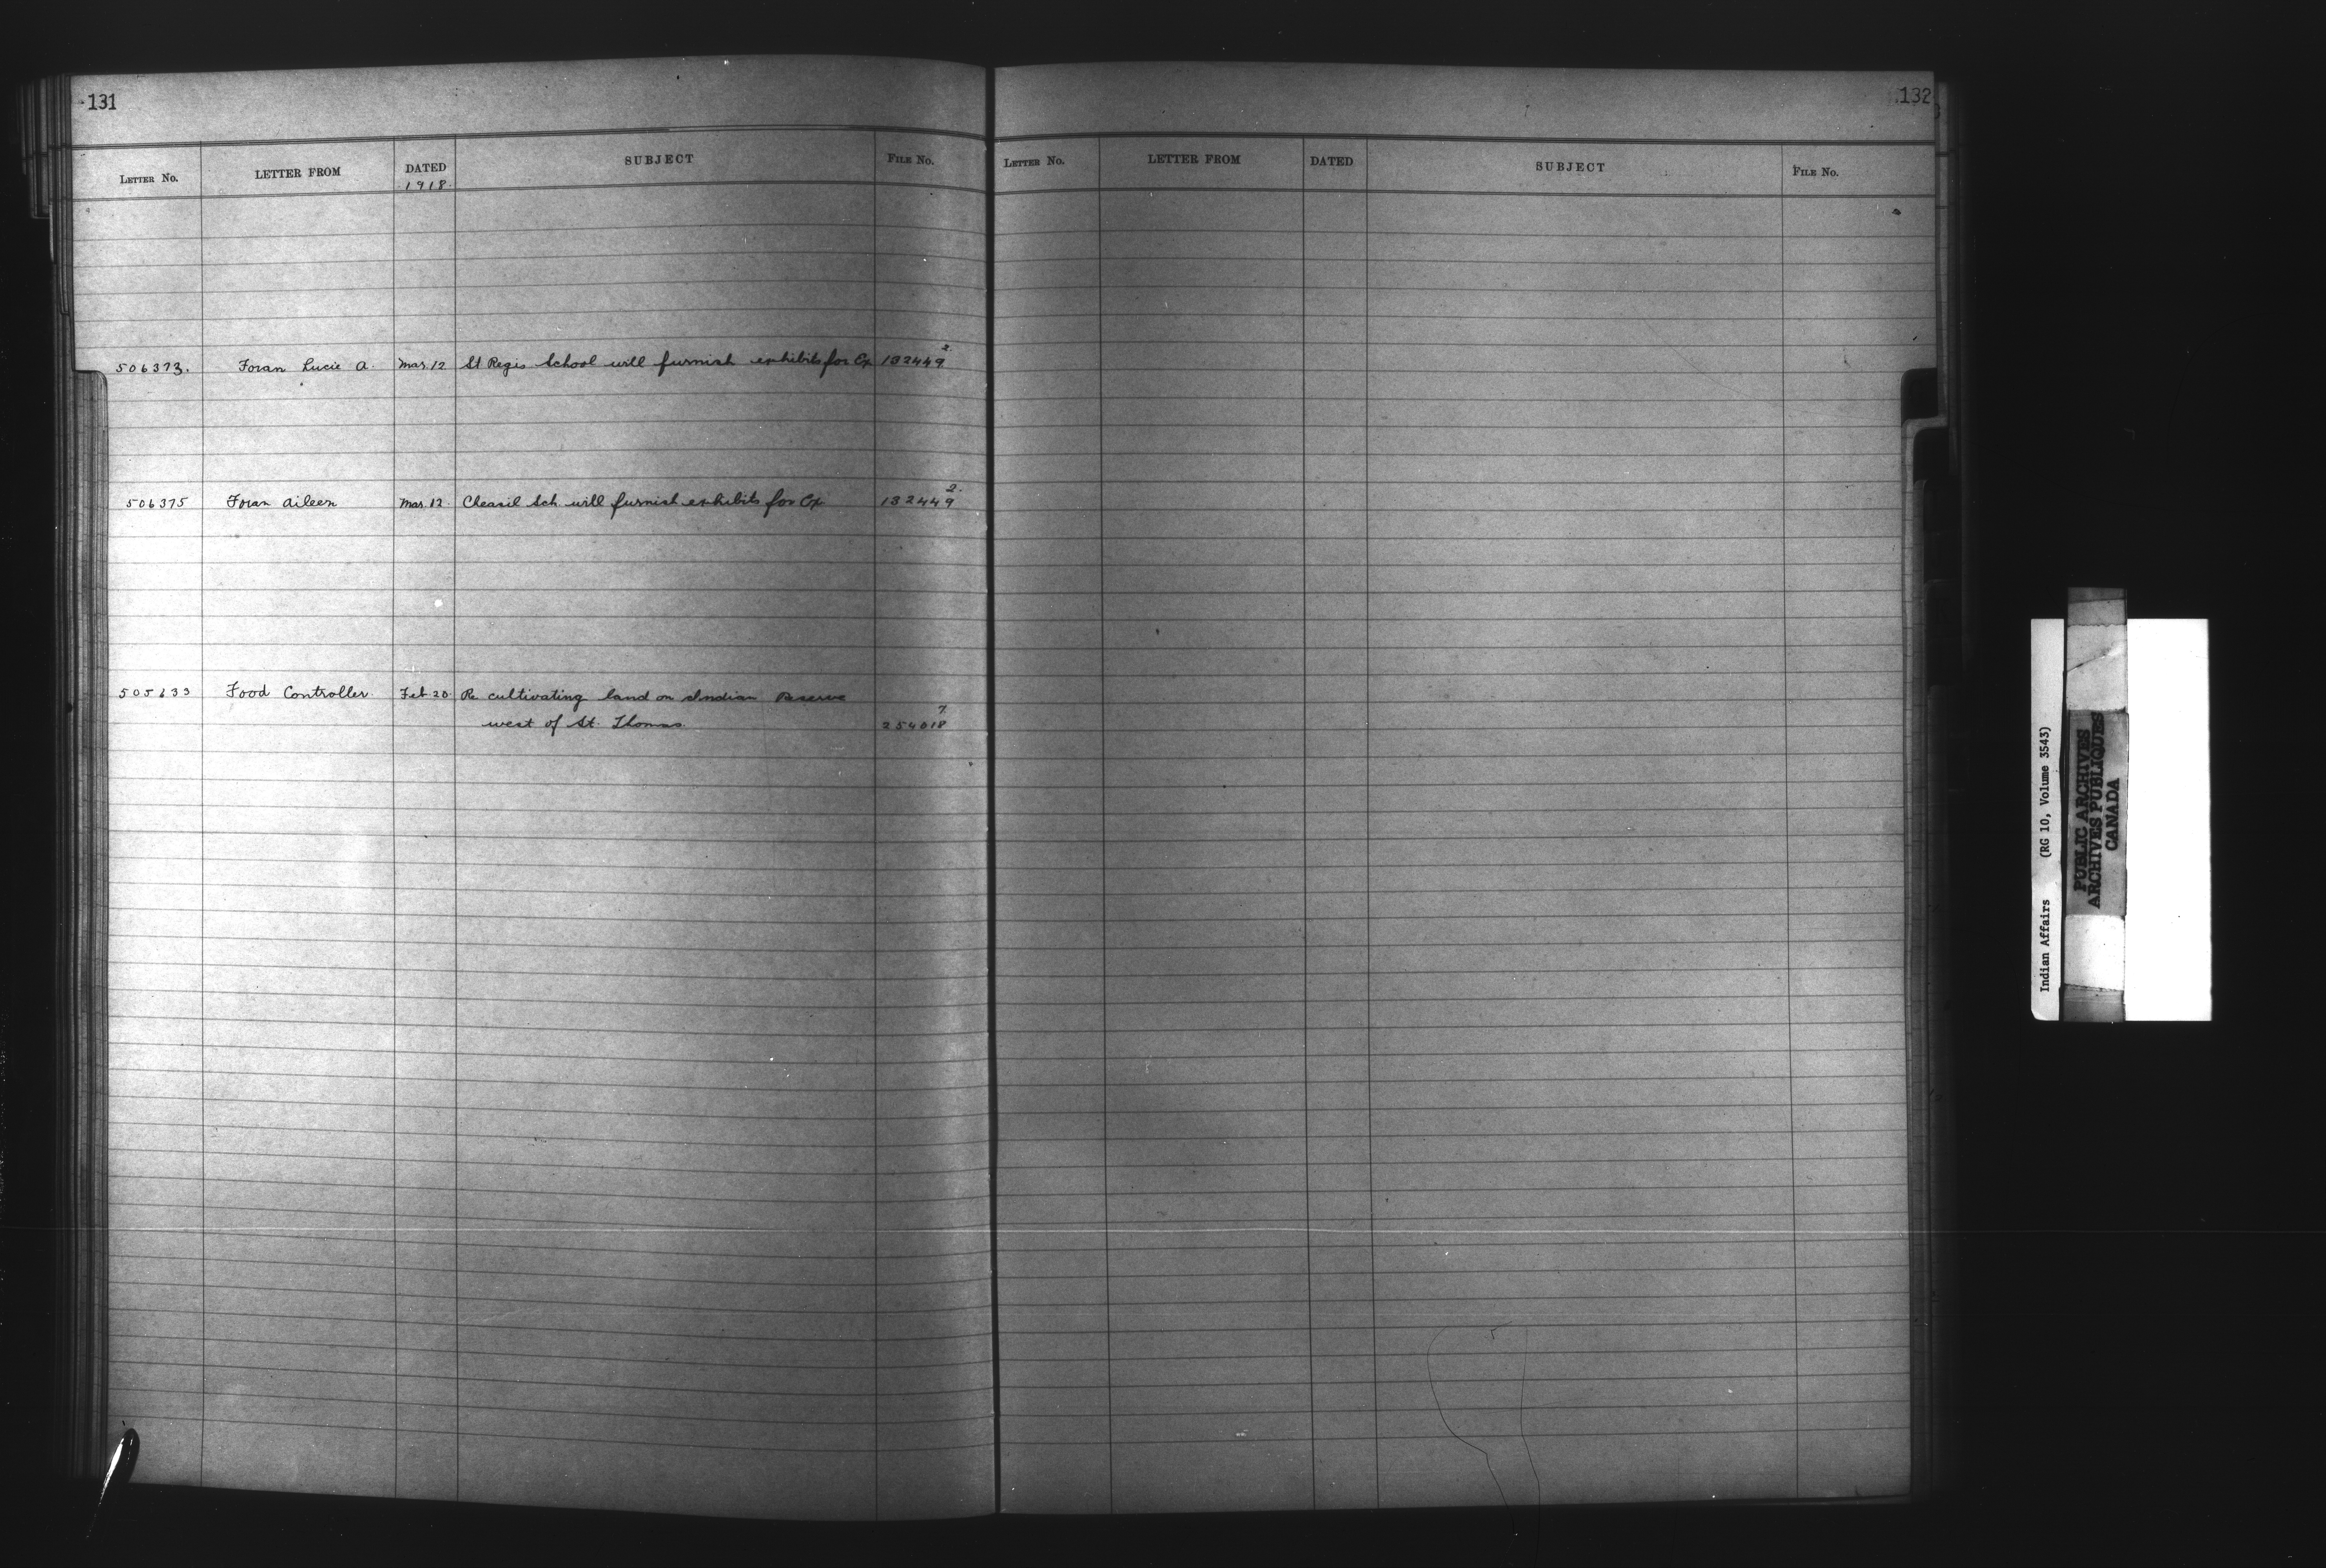 131
LETTER NO. LETTER FROM DATED SUBJECT FILE NO.
1918.
506373. Foran Lucie A. Mar. 12 St Regis School will furnish exhibits for Ex 132449 2.
506375 Foran Aileen Mar. 12. Sch. will furnish exhibits for Ex 132449 2.
505633 Food Controller. Feb 20. Re cultivating land on Indian Reserve
west of St. Thomas. 254018 7.
132
LETTER NO. LETTER FROM DATED SUBJECT FILE NO.
Indian Affairs (RG 10, Volume 3543)
PUBLIC ARCHIVES
ARCHIVES PUBLIQUES
CANADA